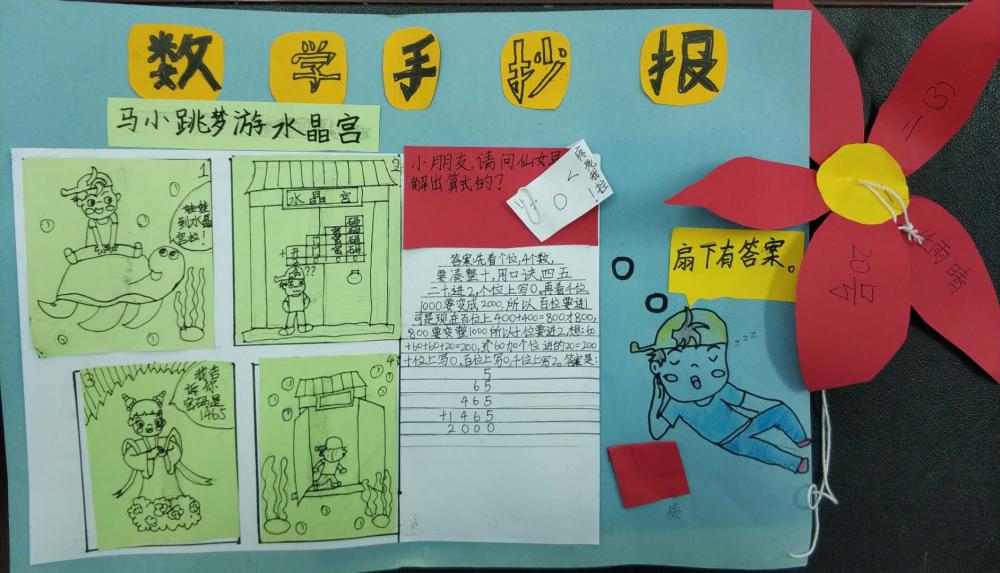 数学手抄报
马小跳梦游水晶宫
1
娃娃
到水晶
宫拉!
2
水晶宫
??
3
我告
诉你
密码是
1465
4
小朋友,请问仙女是
解出算式的?
答案:先看个位,4个数,
要凑整十,用口诀,四五
二十,进2,个位上写0。再看千位,
1000要变成2000,所以百位要进1
可是现在百位上400+400=800才800,
800要变整1000所以十位要进2,想:60
+60+60+20=200,3个60加个位进的20=200
十位上写0,百位上写0,千位上写2。答案是:
5
65
465
+1465
2000
扇下有答案。
zzz
二(3)
雨晴
20号